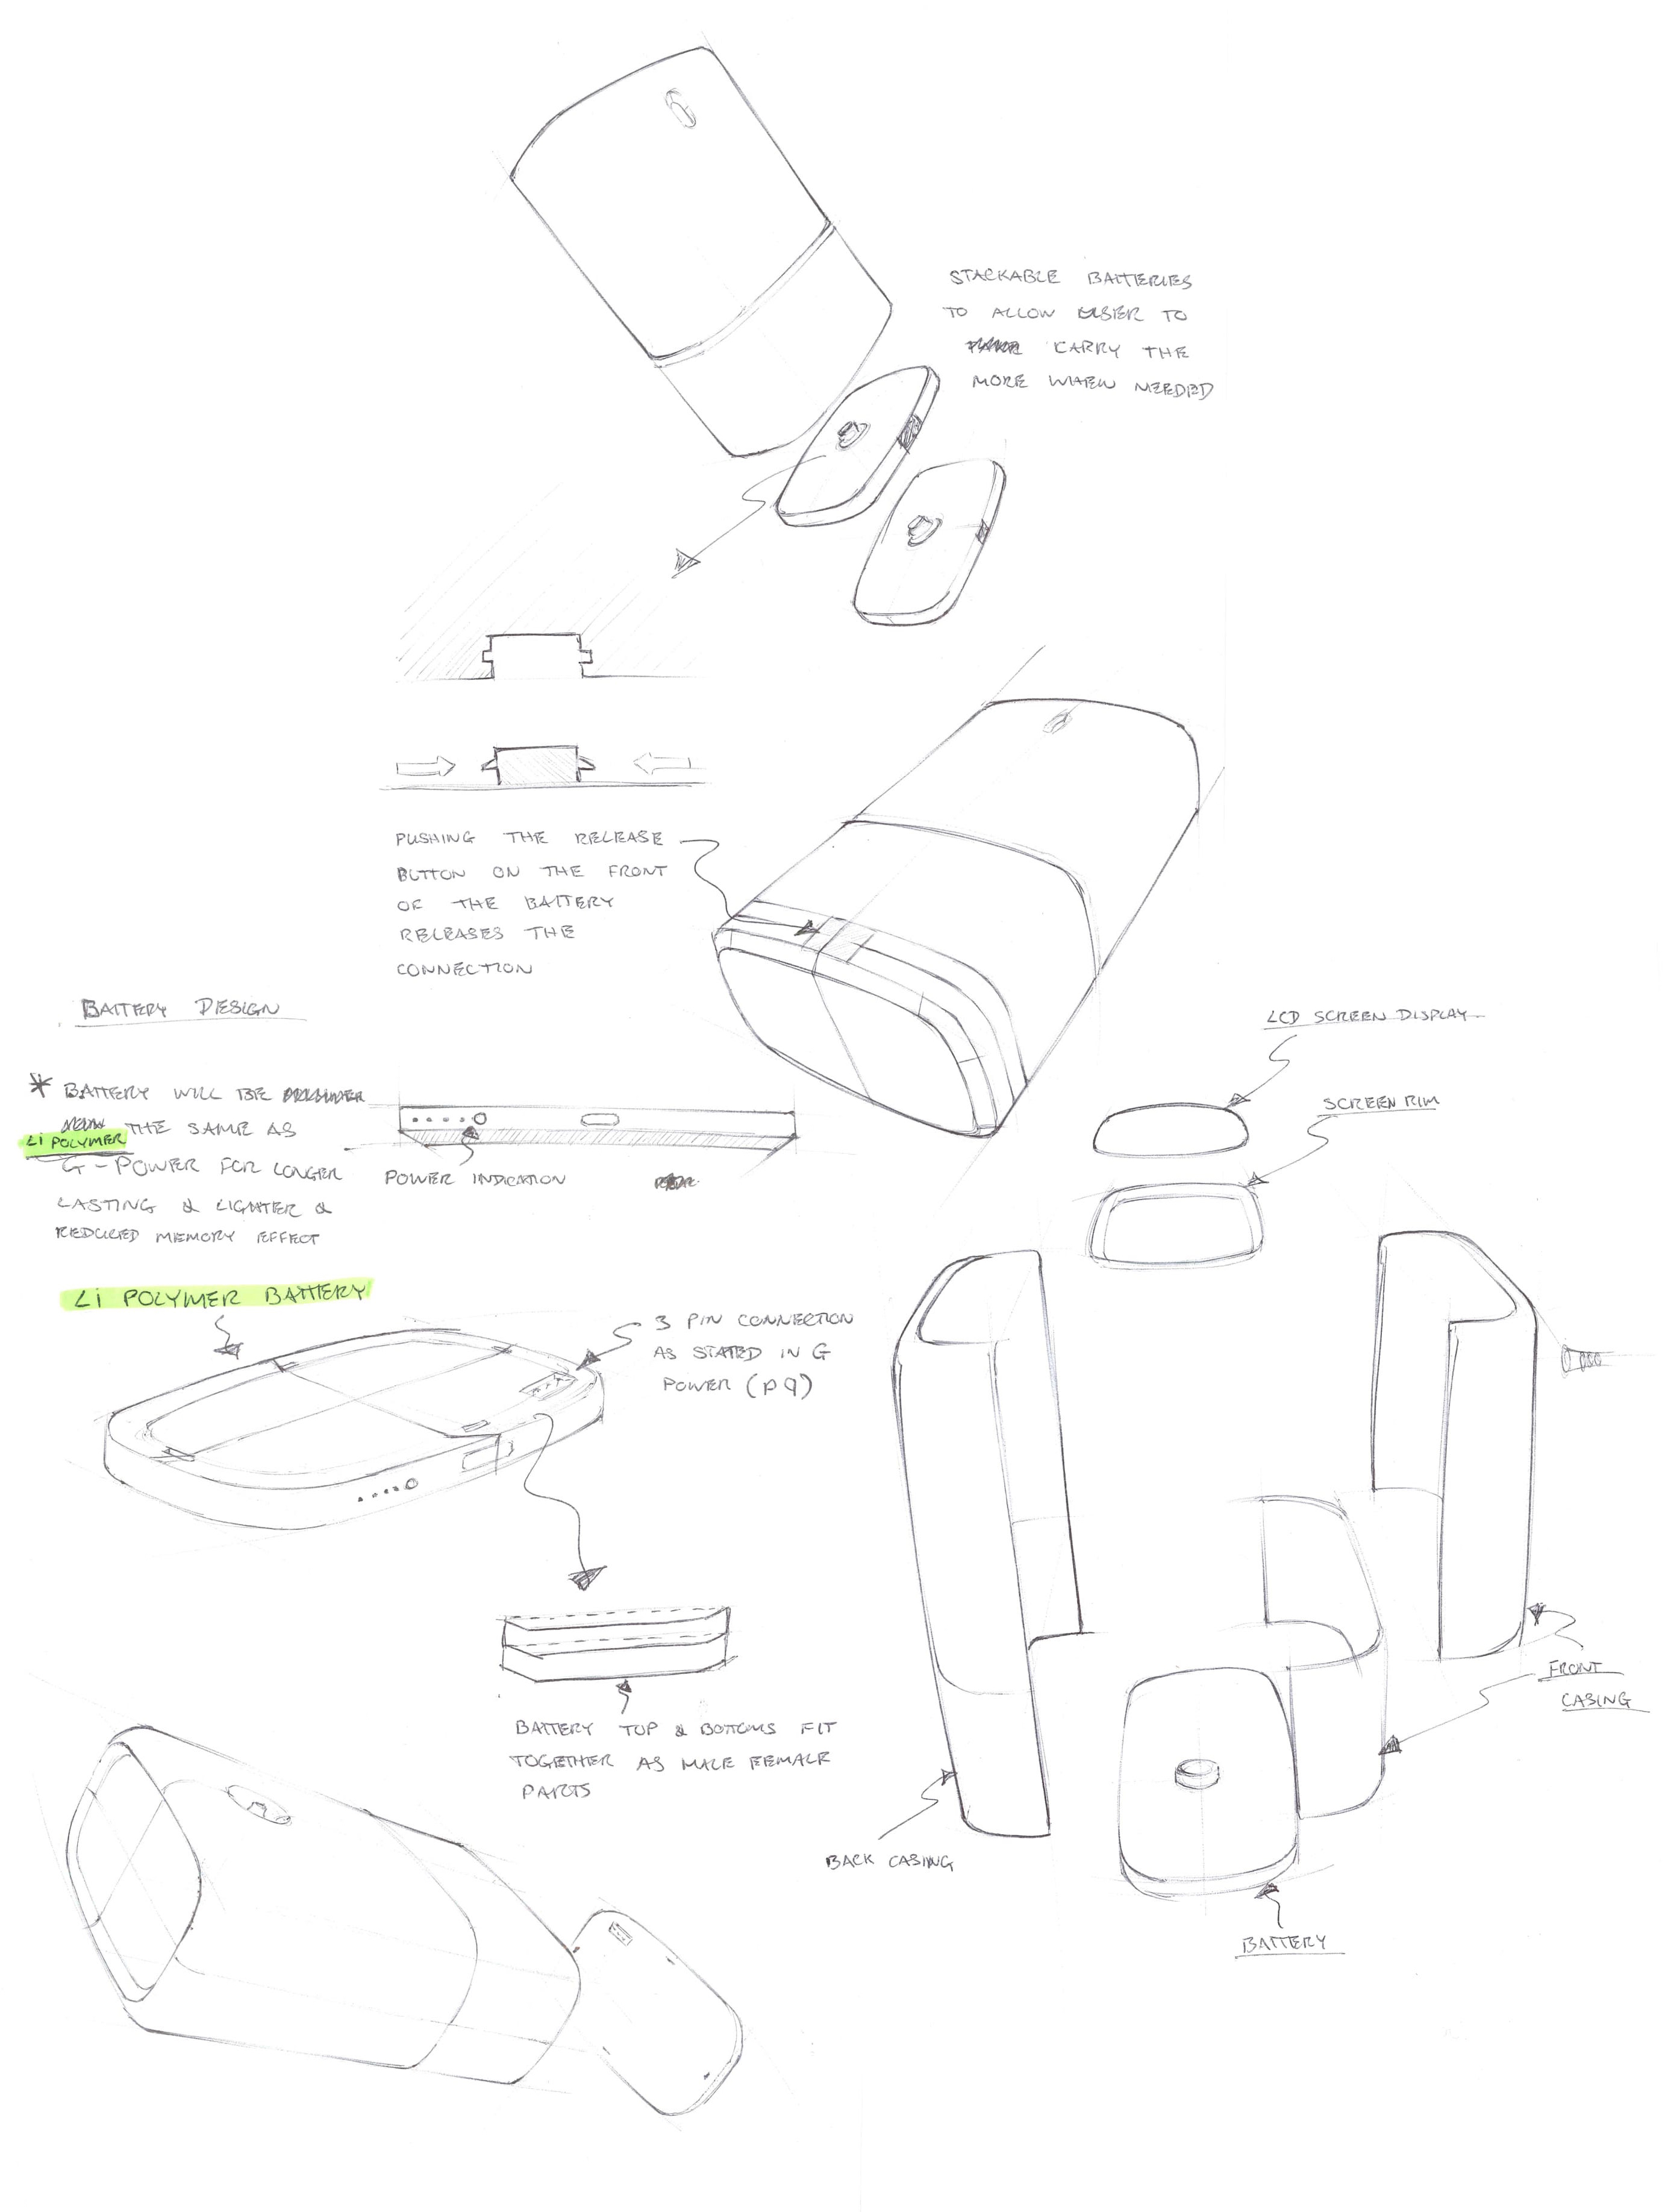 STACKABLE BATTERIES
TO ALLOW USER TO
CARRY THE
MORE WHEN NEEDED
PUSHING THE RELEASE
BUTTON ON THE FRONT
OF THE BATTERY
RELEASES THE
CONNECTION
BATTERY DESIGN
* BATTERY WILL BE
THE SAME AS
Li POLYMER
G-POWER FOR LONGER
LASTING & LIGHTER &
REDUCED MEMORY EFFECT
POWER INDICATION
Li POLYMER BATTERY
3 PIN CONNECTION
AS STATED IN G
POWER (P9)
BATTERY TOP & BOTTOMS FIT
TOGETHER AS MALE FEMALE
PARTS
LCD SCREEN DISPLAY
SCREEN RIM
FRONT
CASING
BACK CASING
BATTERY